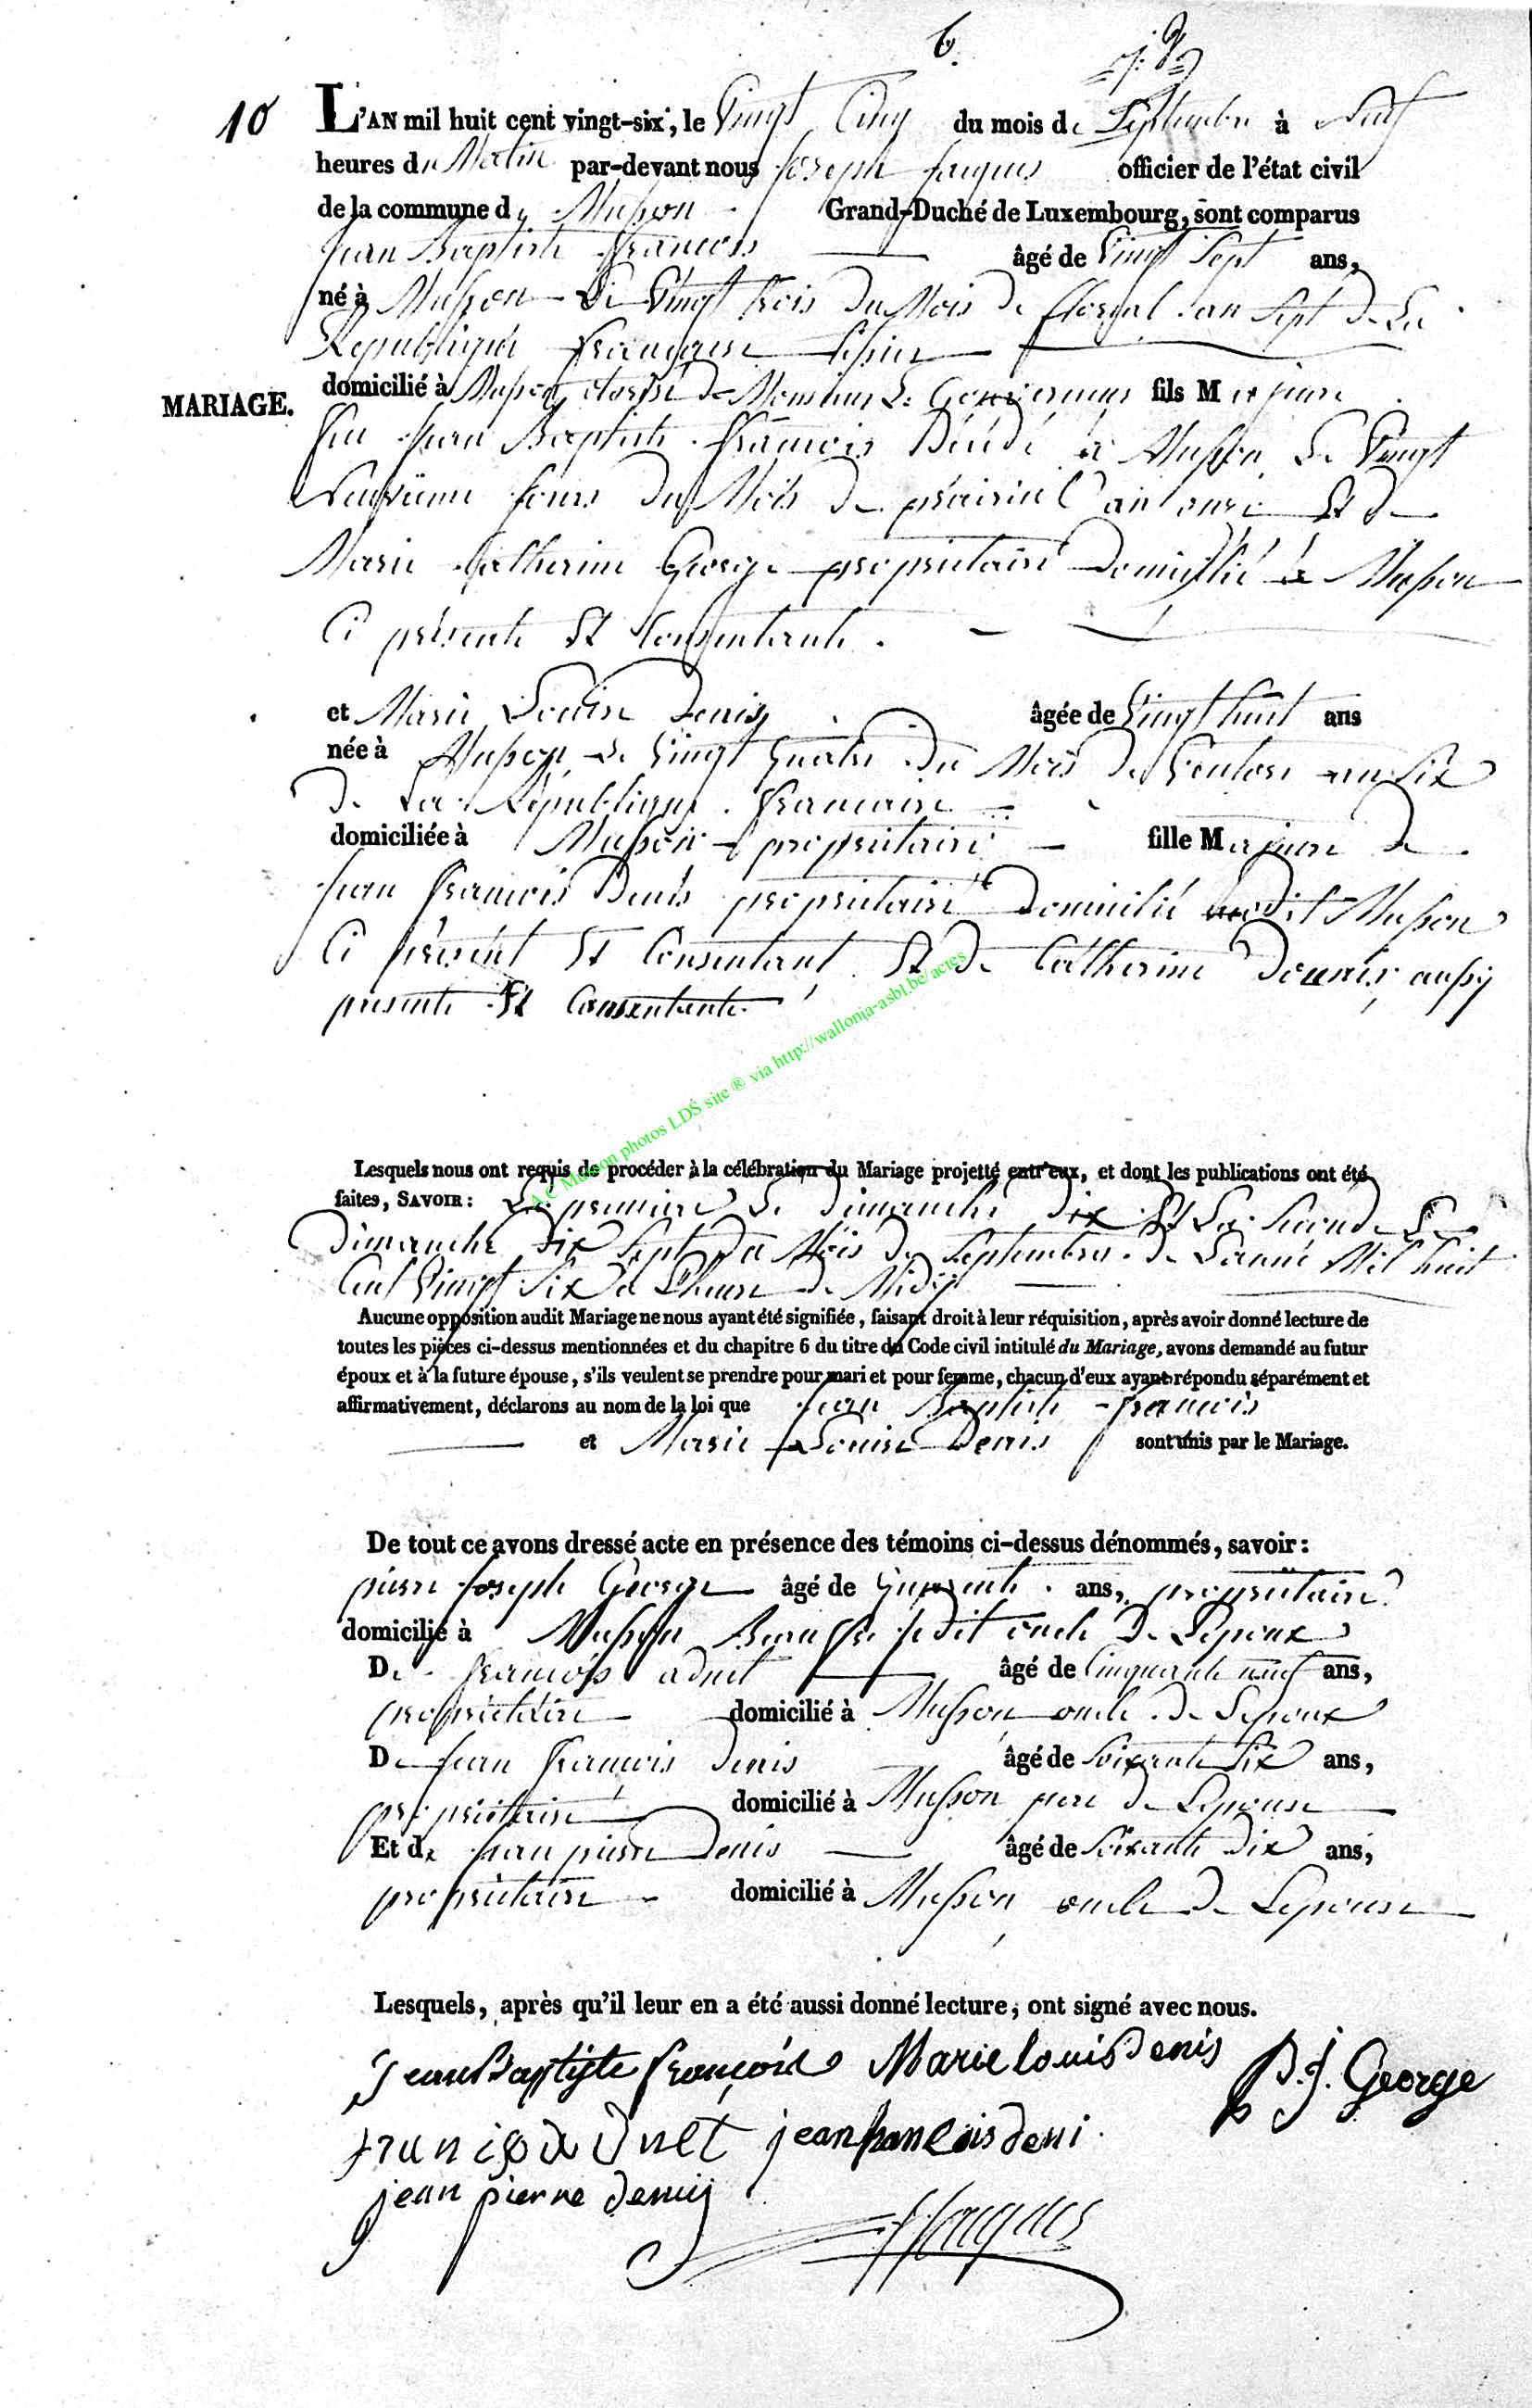 6.
10 L'AN mil huit cent vingt-six, le Vingt Cinq du mois de Septembre à Neuf
heures du Matin par-devant nous Joseph Jacques officier de l'état civil
de la commune de Musson Grand-Duché de Luxembourg, sont comparus
Jean Baptiste Francois âgé de Vingt Sept ans,
né à Musson Le Vingt trois Du Mois De floreal an Sept De La
Republique francaise
MARIAGE. domicilié à Musson fils Majeure
feu Jean Baptiste francois Décédé à Musson Le Vingt
Neuvieme Jours Du Mois De prairial an onze Et De
Marie Catherine George propriétaire Domicilié à Musson
Ci présente Et Consentante.
et Marie Louise Denis âgée de Vingt huit ans
née à Musson Le Vingt Quatre Du Mois De Ventose an Six
De La Republique francaise
domiciliée à Musson propriétaire fille Majeure De
Jean francois Denis propriétaire Domicilié audit Musson
Ci Présent Et Consentant Et De Catherine aussy
présente Et Consentante.
A.C Musson photos LDS site ® via http://wallonia-asbl.be/actes
Lesquels nous ont requis de procéder à la célébration du Mariage projetté entr'eux, et dont les publications ont été
faites, SAVOIR: La premiere Le Dimanche Dix Et La Seconde Le
Dimanche Dix Sept Du Mois De Septembre De Lanné Mil huit
Cent Vingt Six a Lheure De Midÿ
Aucune opposition audit Mariage ne nous ayant été signifiée, faisant droit à leur réquisition, après avoir donné lecture de
toutes les pièces ci-dessus mentionnées et du chapitre 6 du titre du Code civil intitulé du Mariage, avons demandé au futur
époux et à la future épouse, s'ils veulent se prendre pour mari et pour femme, chacun d'eux ayant répondu séparément et
affirmativement, déclarons au nom de la loi que Jean Baptiste francois
et Marie Louise Denis sont unis par le Mariage.
De tout ce avons dressé acte en présence des témoins ci-dessus dénommés, savoir:
pierre Joseph George âgé de Quarente ans, propriétaire
domicilié à Musson oncle De Lepoux
De francois adnet âgé de Cinquante neuf ans,
propriétaire domicilié à Musson oncle De Lepoux
De Jean francois Denis âgé de Soixante Six ans,
propriétaire domicilié à Musson pere De Lepouse
Et de Jean pierre Denis âgé de Soixante Dix ans,
propriétaire domicilié à Musson oncle De Lepouse
Lesquels, après qu'il leur en a été aussi donné lecture, ont signé avec nous.
Jean Baptiste françois Marie louis Denis P.J. George
francois adnet jean francois deni
jean pierre denis
J Jacques